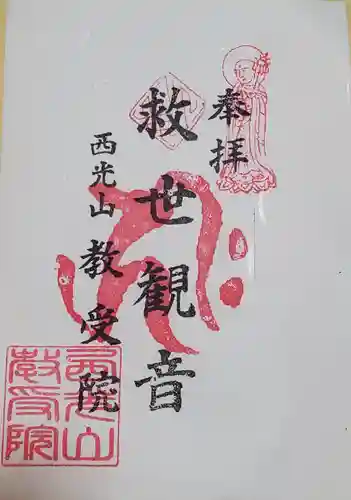 奉拝
救世観音
西光山
教受院
西光山
教受院